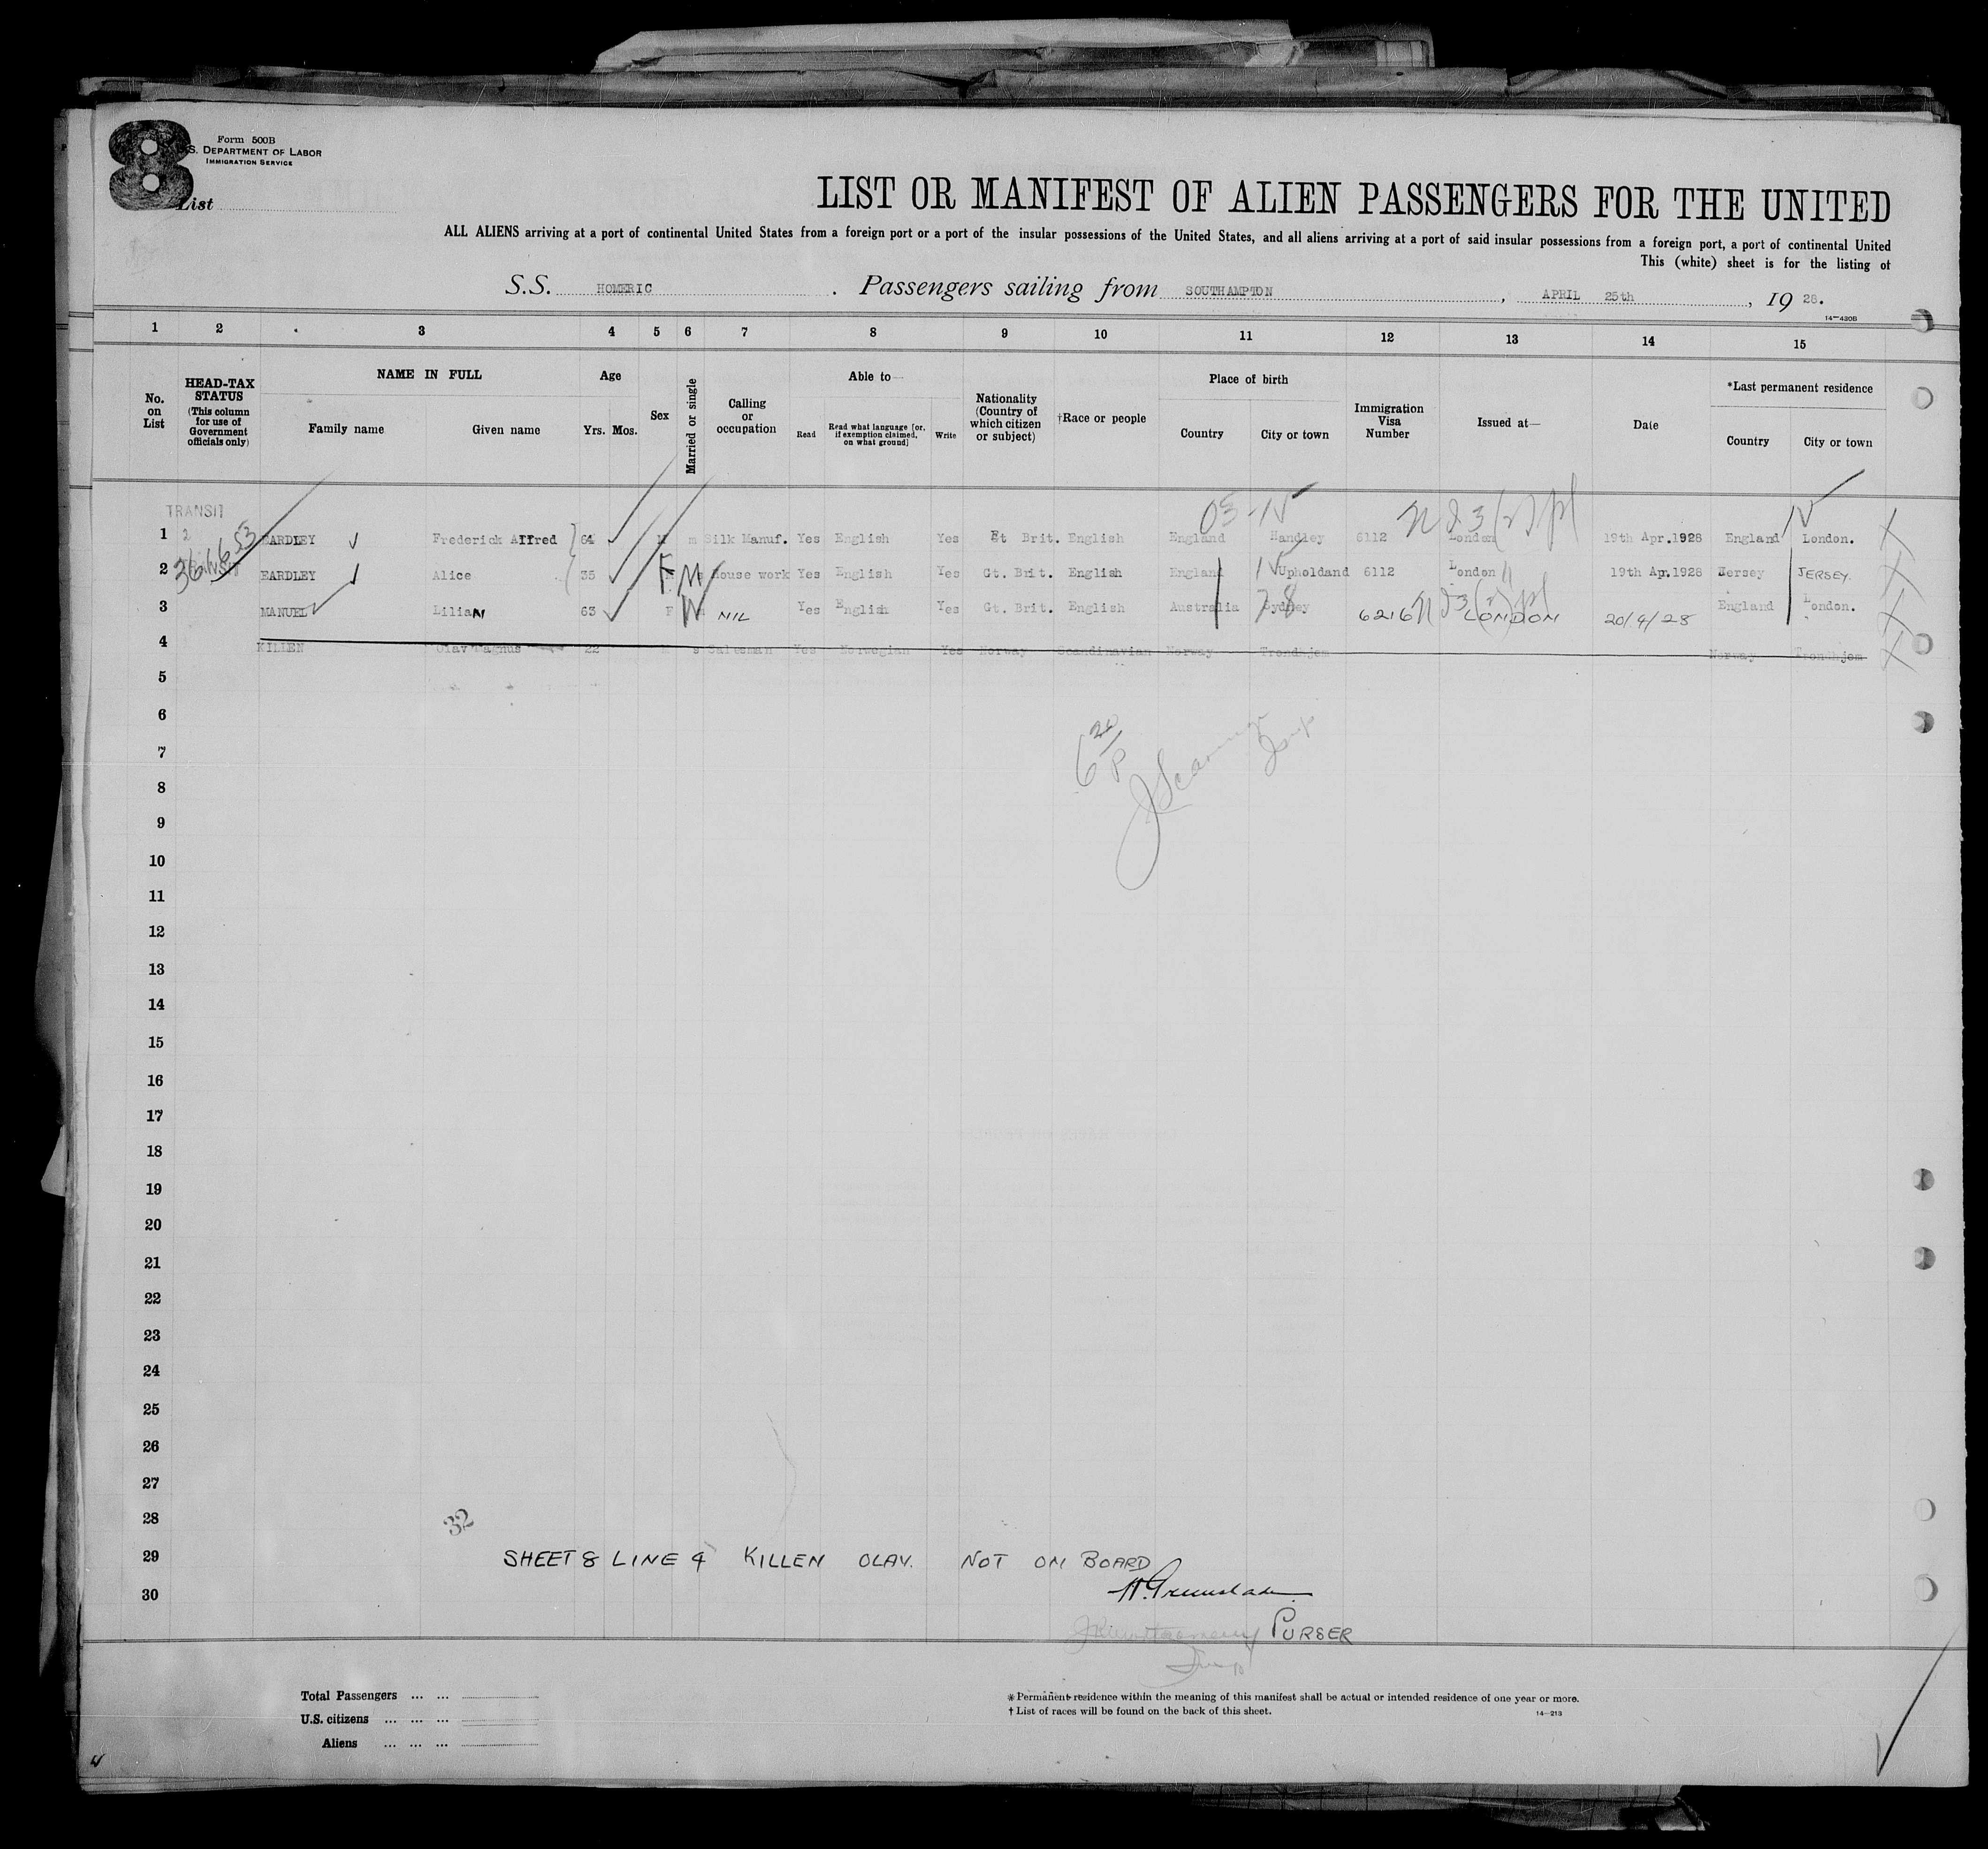 8
Form 500B
U.S. DEPARTMENT OF LABOR
IMMIGRATION SERVICE
List
LIST OR MANIFEST OF ALIEN PASSENGERS FOR THE UNITED
ALL ALIENS arriving at a port of continental United States from a foreign port or a port of the insular possessions of the United States, and all aliens arriving at a port of said insular possessions from a foreign port, a port of continental United
This (white) sheet is for the listing of
S.S. HOMERIC. Passengers sailing from SOUTHAMPTON, APRIL 25th, 1928.
14—430B
1 2 3 4 5 6 7 8 9 10 11 12 13 14 15
No. on List
HEAD-TAX STATUS (This column for use of Government officials only)
NAME IN FULL
Family name Given name
Age
Yrs. Mos.
Sex
Married or single
Calling or occupation
Able to—
Read Read what language [or, if exemption claimed, on what ground] Write
Nationality (Country of which citizen or subject)
†Race or people
Place of birth
Country City or town
Immigration Visa Number
Issued at—
Date
*Last permanent residence
Country City or town
TRANSIT 03-15
1 2 EARDLEY Frederick Alfred 64 M m Silk Manuf. Yes English Yes Gt Brit. English England Handley 6112 London 19th Apr.1928 England London.
361653
2 TRANSIT EARDLEY Alice 35 F M House work Yes English Yes Gt. Brit. English England Upholdand 6112 London 19th Ap.1928 Jersey JERSEY.
3 MANUEL Lilian 63 F NIL Yes English Yes Gt. Brit. English Australia Sydney 78 6216 LONDON 20/4/28 England London.
4 KILLEN Olav Magnus 22 s Salesman Yes Norwegian Yes Norway Scandinavian Norway Trondhjem Norway Trondhjem
5
6
7
8
9
10
11
12
13
14
15
16
17
18
19
20
21
22
23
24
25
26
27
28
32
29 SHEET 8 LINE 4 KILLEN OLAV. NOT ON BOARD
30
PURSER
Total Passengers ... ...
U.S. citizens ... ... ...
Aliens ... ... ...
* Permanent residence within the meaning of this manifest shall be actual or intended residence of one year or more.
† List of races will be found on the back of this sheet.
14—213